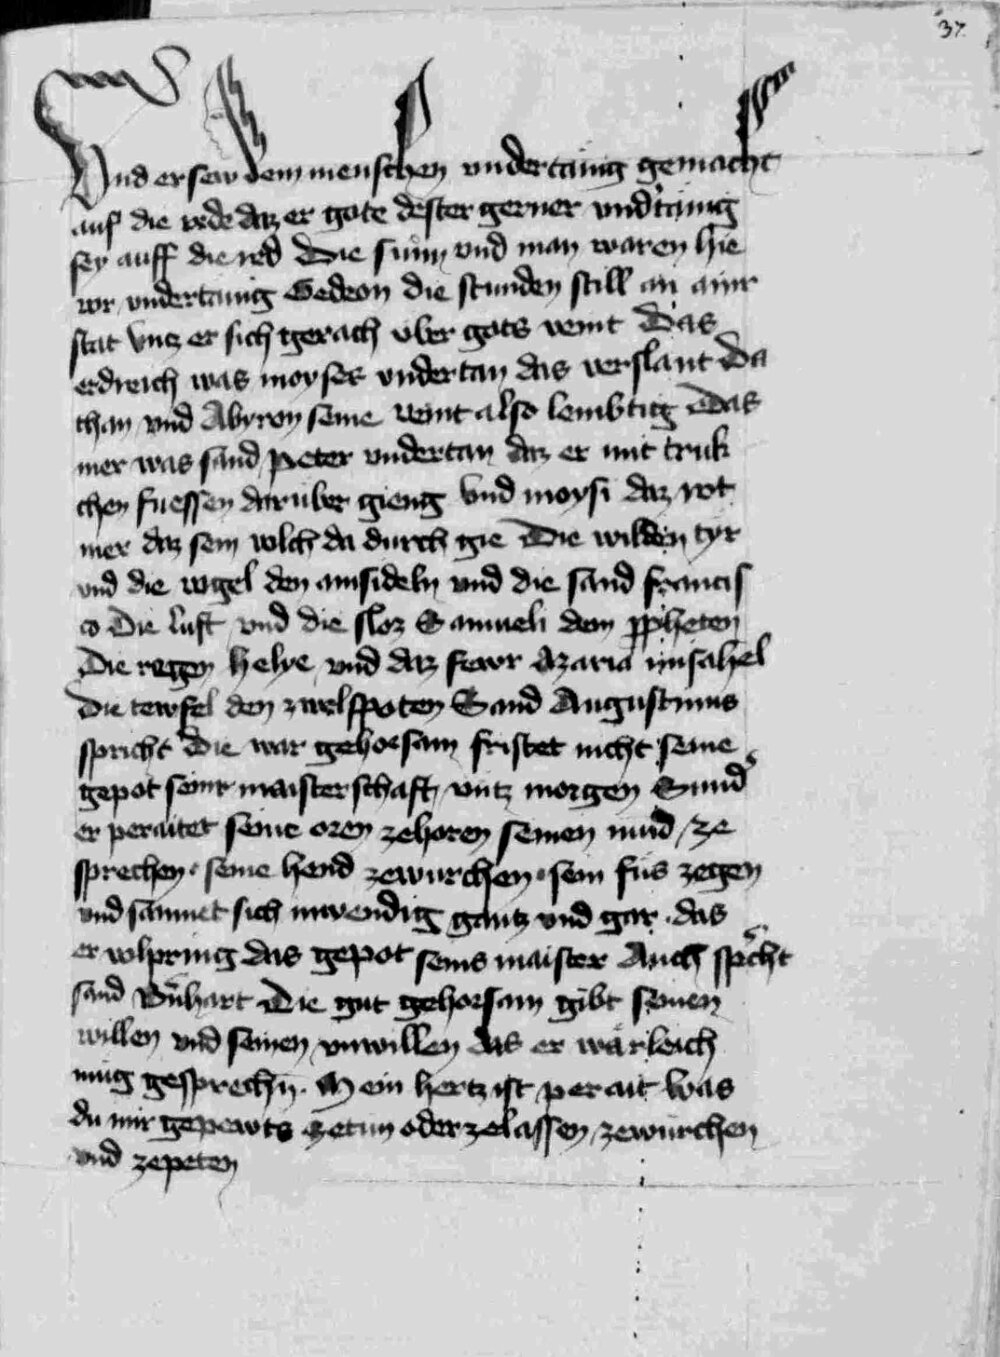 37
Vnd er sew dem menschen vndertänig gemacht
auf die rede daz er gote dester gerner vndtänig
sey auff die red Die sunn vnd man waren hie
vor vndertanig Gedeon die stunden still an ainr
stat vntz er sich gerach vber gots veint Das
erdreich was moyses vndertan das verslant Da
than vnd Abyron seine veint also lembtig Das
mer was sand Peter vndertan daz er mit truk
chen fuessen darüber gieng Vnd moysi daz rot
mer daz sein volch da durch gie Die wilden tyr
vnd die vogel den ainsideln vnd die sand francis
co Die luft vnd die sloz Samueli dem ppheten
Die regen helye vnd daz fewr azaria misahel
Die tewfel den zwelfpoten Sand Augustinus
spricht Die war gehorsam fristet nicht seine
gepot seinr maisterschaft vntz morgen Sund
er peraitet seine oren zehoren seinen mud ze
sprechen seine hend zewurchen sein füs zegen
vnd samnet sich inwendig gantz vnd gar das
er volpring das gepot seins maister Auch spcht
sand Bnhart Die gut gehorsam gibt seinen
willen vnd seinen vnwillen das er warleich
mug gesprechn Mein hertz ist perait was
du mir gepewts zetun oder zelassen zewurchen
vnd zepeten